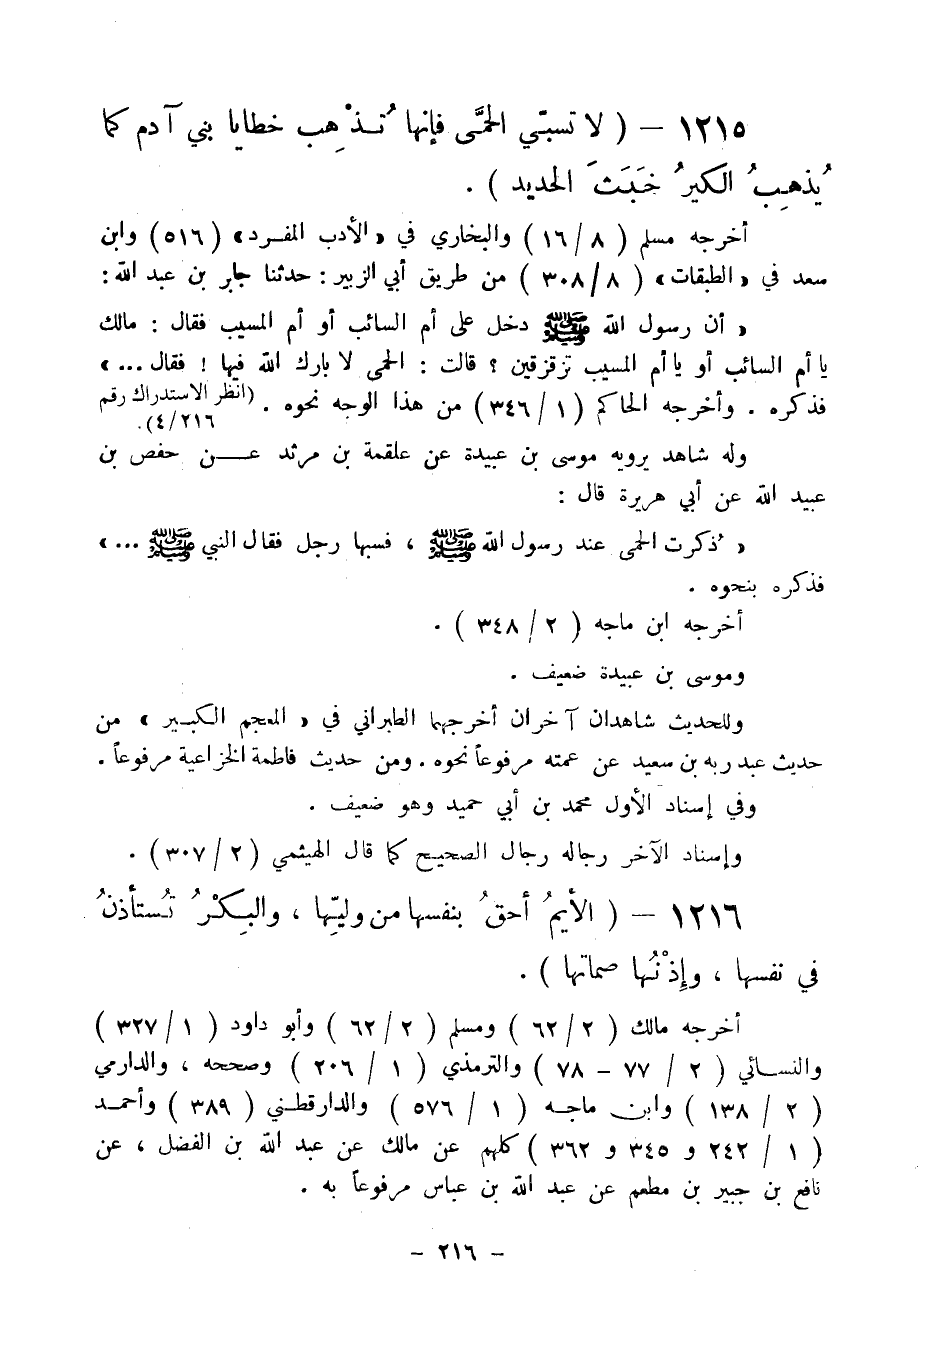 ١٢١٥ – ( لا تسبّي الحمَّى فإنها تُـذْهِب خطايا بني آدم كما
يُذهِبُ الكيرُ خَبَثَ الحديد ) .
أخرجه مسلم ( ٨ / ١٦ ) والبخاري في « الأدب المفـرد » ( ٥١٦ ) وابن
سعد في « الطبقات » ( ٨ / ٣٠٨ ) من طريق أبي الزبير : حدثنا جابر بن عبد الله :
« أن رسول الله ﷺ دخل على أم السائب أو أم المسيب فقال : مالك
يا أم السائب أو يا أم المسيب تزفزفين ؟ قالت : الحمى لا بارك الله فيها ! فقال ... »
فذكره . وأخرجه الحاكم ( ١ / ٣٤٦ ) من هذا الوجه نحوه . (انظر الاستدراك رقم
٤/٢١٦).
وله شاهد يرويه موسى بن عبيدة عن علقمة بن مرثد عـــن حفص بن
عبيد الله عن أبي هريرة قال :
« ذُكرت الحمى عند رسول الله ﷺ ، فسبها رجل فقال النبي ﷺ ... »
فذكره بنحوه .
أخرجه ابن ماجه ( ٢ / ٣٤٨ ) .
وموسى بن عبيدة ضعيف .
وللحديث شاهدان آخران أخرجهما الطبراني في « المعجم الكبـير » من
حديث عبد ربه بن سعيد عن عمته مرفوعاً نحوه . ومن حديث فاطمة الخزاعية مرفوعاً .
وفي إسناد الأول محمد بن أبي حميد وهو ضعيف .
وإسناد الآخر رجاله رجال الصحيح كما قال الهيثمي ( ٢ / ٣٠٧ ) .
١٢١٦ – ( الأيمُ أحقُ بنفسها من وليِّها ، والبِـكْرُ تُستأذنُ
في نفسها ، وإِذْنُها صماتها ) .
أخرجه مالك ( ٢ / ٦٢ ) ومسلم ( ٢ / ٦٢ ) وأبو داود ( ١ / ٣٢٧ )
والنســائي ( ٢ / ٧٧ – ٧٨ ) والترمذي ( ١ / ٢٠٦ ) وصححه ، والدارمي
( ٢ / ١٣٨ ) وابن ماجـه ( ١ / ٥٧٦ ) والدارقطـني ( ٣٨٩ ) وأحمـد
( ١ / ٢٤٢ و ٣٤٥ و ٣٦٢ ) كلهم عن مالك عن عبد الله بن الفضل ، عن
نافع بن جبير بن مطعم عن عبد الله بن عباس مرفوعاً به .
– ٢١٦ –